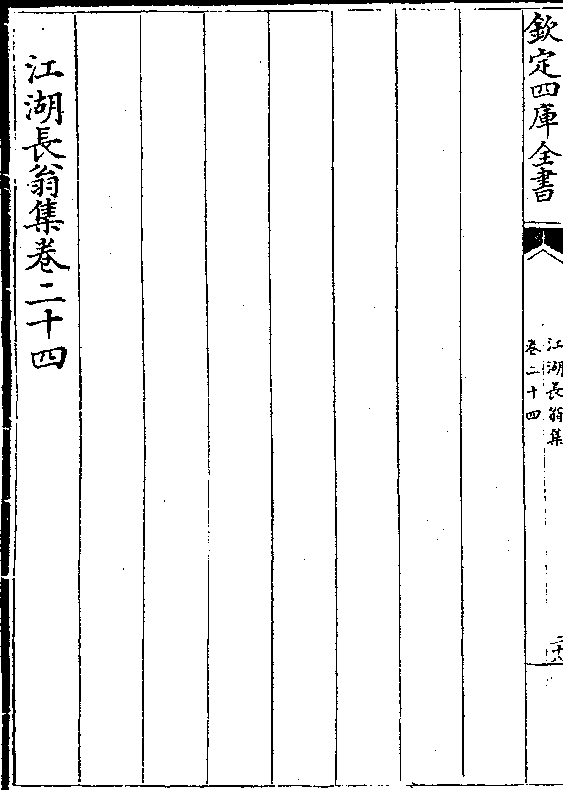 欽定四庫全書
江湖長翁集
卷二十四
江湖長翁集卷二十四